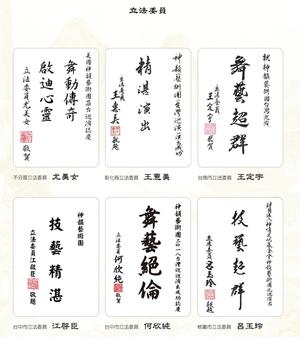 立法委員
美國神韻藝術團蒞台巡演誌慶
舞動傳奇
啟迪心靈
立法委員尤美女
敬賀
不分區立法委員 尤美女
神韻藝術團台灣巡演演出成功
精湛演出
立法委員
王惠美
敬題
彰化縣立法委員 王惠美
舞藝超群
立法委員
王定宇
敬賀
台南市立法委員 王定宇
神韻藝術團
技藝精湛
立法委員江啟臣
敬題
台中市立法委員 江啓臣
神韻藝術團二〇一八台灣巡迴演出成功誌慶
舞藝絕倫
立法委員
何欣純
敬賀
台中市立法委員 何欣純
技藝超群
立法委員
呂玉玲
敬賀
桃園市立法委員 呂玉玲